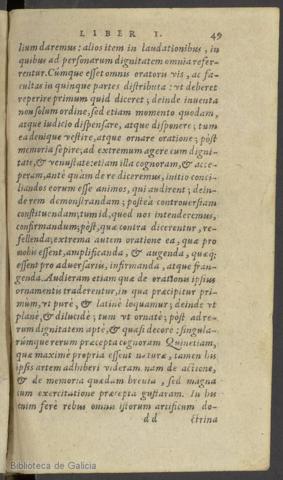 LIBER I. 49
lium daremus: alios item in laudationibus, in
quibus ad personarum dignitatem omnia refer-
rentur. Cúmque esset omnis oratoris vis, ac fa-
cultas in quinque partes distributa: vt deberet
reperire primum quid diceret; deinde inuenta
non solum ordine, sed etiam momento quodam,
atque iudicio dispensare, atque disponere; tum
ea denique vestire, atque ornare oratione; pòst
memoria sepire; ad extremum agere cum digni-
tate, & venustate: etiam illa cognoram, & acce-
peram, ante quàm de re diceremus, initio conci-
liandos eorum esse animos, qui audirent; dein-
de rem demonstrandam; postea controuersiam
constituendam; tum id, quod nos intenderemus,
confirmandum; pòst, quæ contra dicerentur, re-
fellenda; extrema autem oratione ea, quæ pro
nobis essent, amplificanda, & augenda, quæq;
essent pro aduersariis, infirmanda, atque fran-
genda. Audieram etiam quæ de orationis ipsius
ornamentis traderentur, in qua præcipitur pri-
mum, vt purè, & latinè loquamur; deinde vt
planè, & dilucidè; tum vt ornatè; pòst ad re-
rum dignitatem aptè, & quasi decorè: singula-
rúmque rerum præcepta cognoram. Quinetiam,
quæ maximè propria essent naturæ, tamen his
ipsis artem adhiberi videram. nam de actione,
& de memoria quædam breuia, sed magna
cum exercitatione præcepta gustaram. In his
enim ferè rebus omnis istorum artificum do-
dd ctrina
Biblioteca de Galicia